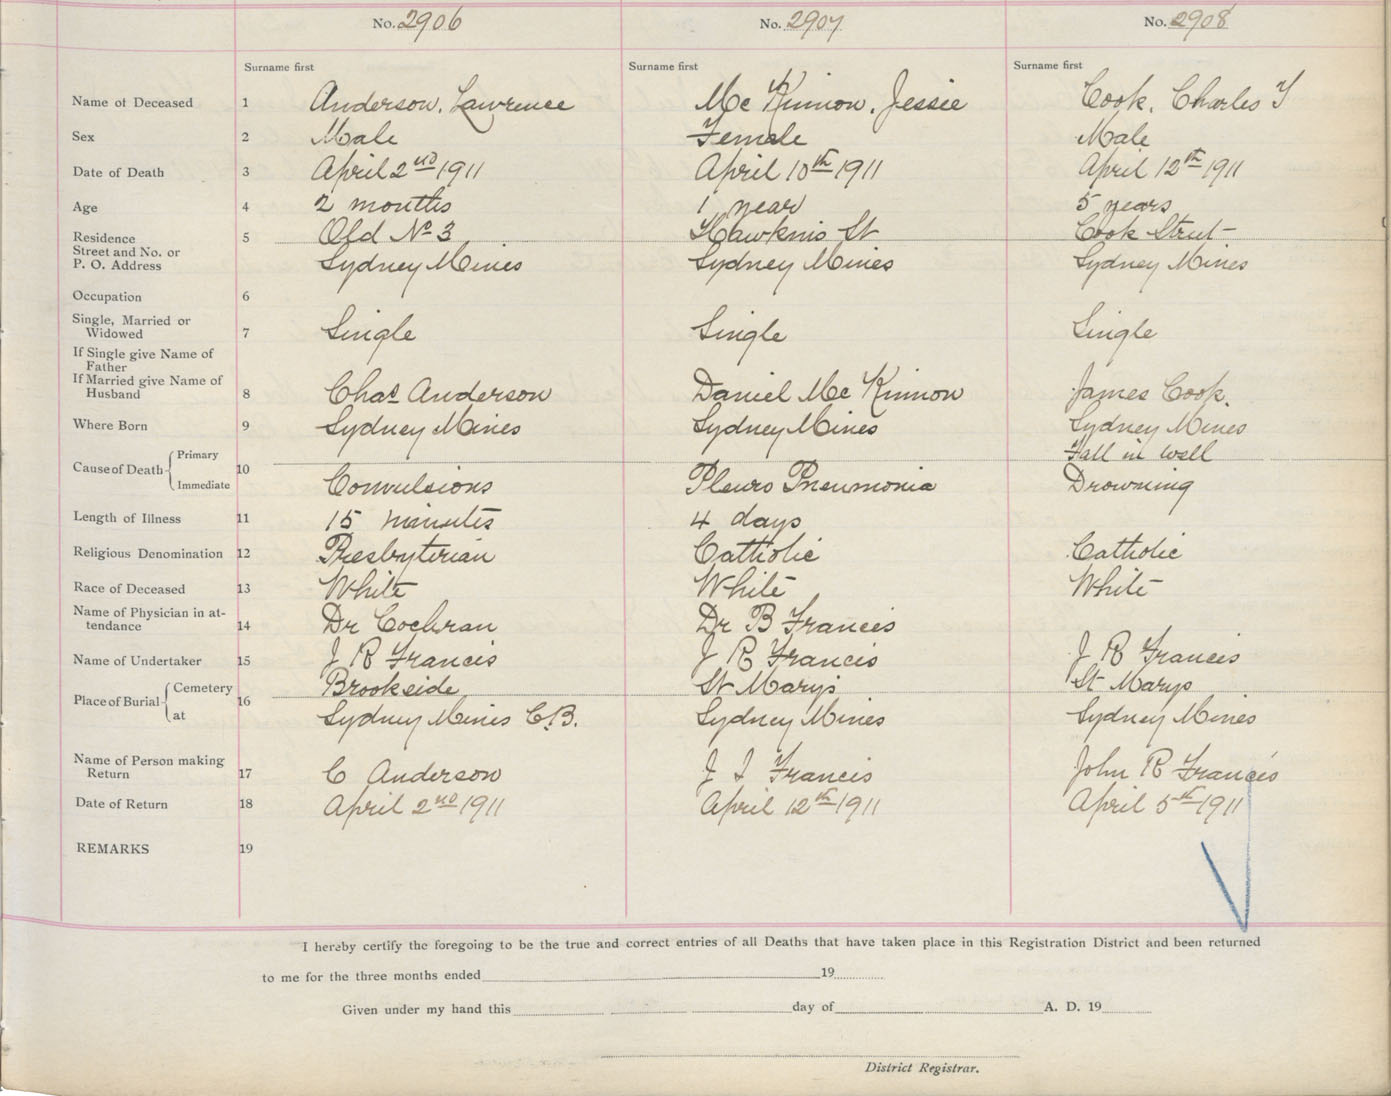 No. 2906 No. 2907 No. 2908
Surname first Surname first Surname first
Name of Deceased 1 Anderson, Lawrence Mc Kinnon, Jessie Cook, Charles T
Sex 2 Male Female Male
Date of Death 3 April 2nd 1911 April 10th 1911 April 12th 1911
Age 4 2 months 1 year 5 years
Residence 5 Old No 3 Hawkins St Cook Street
Street and No. or
P. O. Address Sydney Mines Sydney Mines Sydney Mines
Occupation 6
Single, Married or
Widowed 7 Single Single Single
If Single give Name of
Father
If Married give Name of
Husband 8 Chas Anderson Daniel Mc Kinnon James Cook.
Where Born 9 Sydney Mines Sydney Mines Sydney Mines
Cause of Death Primary 10 Fall in well
Immediate Convulsions Pleuro Pneumonia Drowning
Length of Illness 11 15 minutes 4 days
Religious Denomination 12 Presbyterian Catholic Catholic
Race of Deceased 13 White White White
Name of Physician in at-
tendance 14 Dr Cochran Dr B Francis
Name of Undertaker 15 J R Francis J R Francis J R Francis
Place of Burial Cemetery 16 Brookside St Marys St Marys
at Sydney Mines C.B. Sydney Mines Sydney Mines
Name of Person making
Return 17 C Anderson J I Francis John R Francis
Date of Return 18 April 2nd 1911 April 12th 1911 April 5th 1911
REMARKS 19
I hereby certify the foregoing to be the true and correct entries of all Deaths that have taken place in this Registration District and been returned
to me for the three months ended 19
Given under my hand this day of A. D. 19
District Registrar.